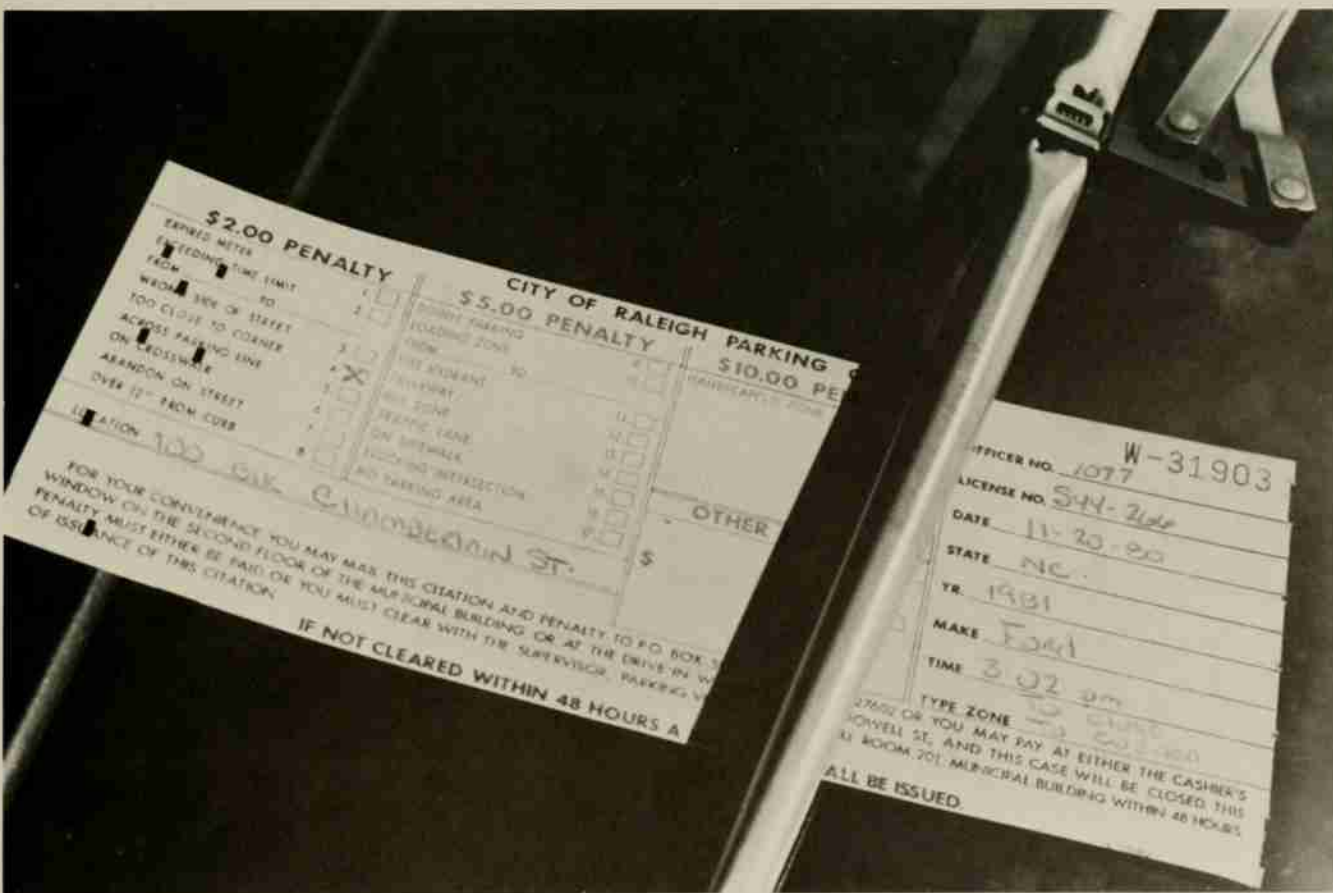 $2.00 PENALTY
EXPIRED METER 1
EXCEEDING TIME LIMIT 2
FROM TO
WRONG SIDE OF STREET 3
TOO CLOSE TO CORNER 4 X
ACROSS PARKING LINE 5
ON CROSSWALK 6
ABANDON ON STREET 7
OVER 12" FROM CURB 8
CITY OF RALEIGH PARKING
$5.00 PENALTY
DOUBLE PARKING
LOADING ZONE
FROM TO
FIRE HYDRANT 11
DRIVEWAY 12
BUS ZONE 13
TRAFFIC LANE 14
ON SIDEWALK
BLOCKING INTERSECTION
NO PARKING AREA
$10.00 PE
HANDICAPPED ZONE
OTHER
$
LOCATION 100 BLK CHAMBERLAIN ST.
FOR YOUR CONVENIENCE YOU MAY MAIL THIS CITATION AND PENALTY TO P.O. BOX
WINDOW ON THE SECOND FLOOR OF THE MUNICIPAL BUILDING OR AT THE DRIVE-IN W
PENALTY MUST EITHER BE PAID OR YOU MUST CLEAR WITH THE SUPERVISOR, PARKING V
OF ISSUANCE OF THIS CITATION.
IF NOT CLEARED WITHIN 48 HOURS A
W-31903
OFFICER NO. 1077
LICENSE NO. SYY-266
DATE 11-20-80
STATE NC.
YR. 1981
MAKE Ford
TIME 3 02 pm
TYPE ZONE To close
To
27602 OR YOU MAY PAY AT EITHER THE CASHIER'S
DOWELL ST, AND THIS CASE WILL BE CLOSED. THIS
ROOM 201, MUNICIPAL BUILDING WITHIN 48 HOURS
ALL BE ISSUED.